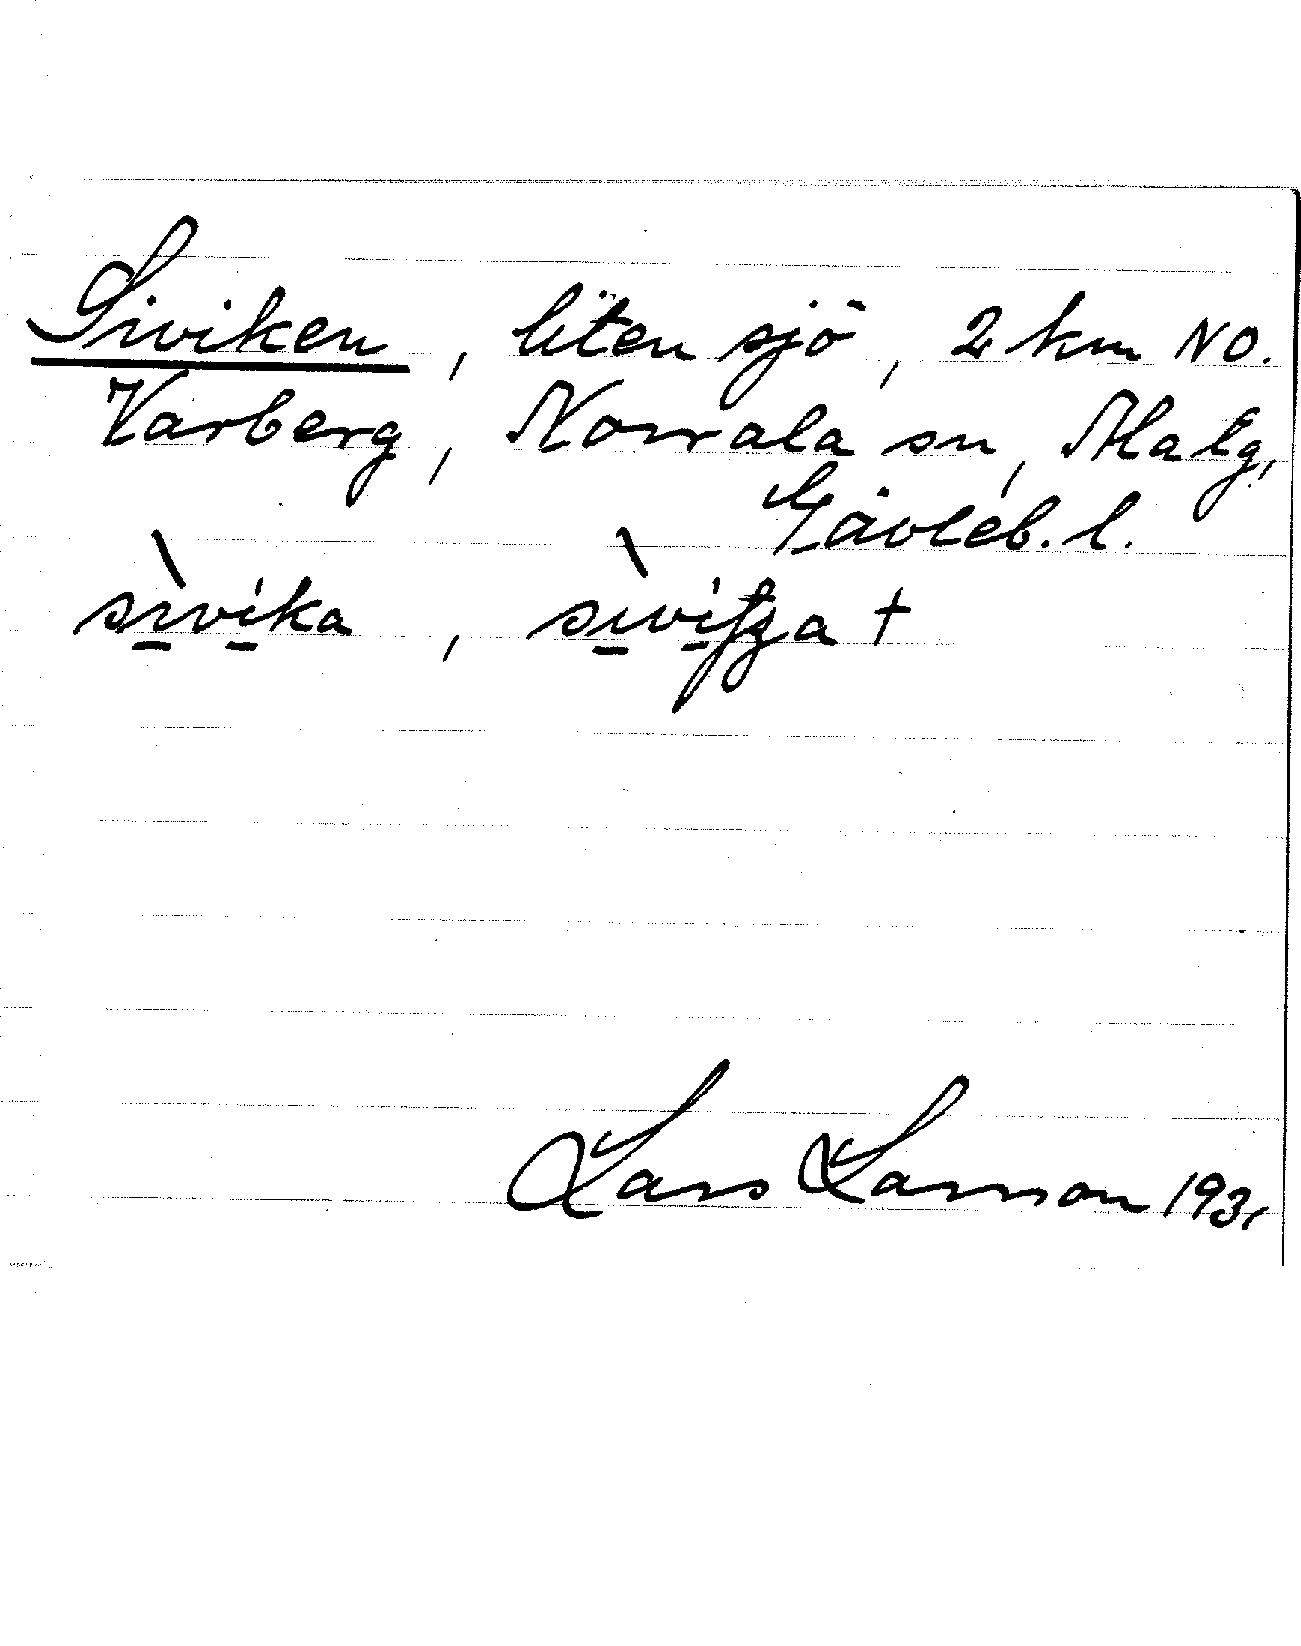 Siviken, liten sjö, 2 km NO.
Varberg, Norrala sn, Ala lg,
Gävleb. l.
sìvika, sìvitʒa +
Lars Larsson 1931